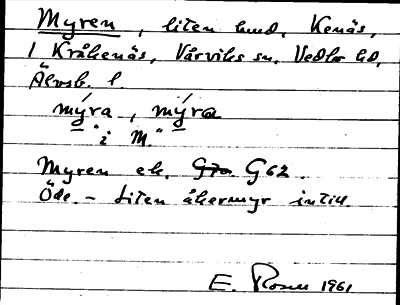 Myren, liten lund, Kenäs,
1 Kråkenäs, Vårviks sn, Vedbo hd,
Älvsb. l.
mýra, mýra
"i M."
Myren ek. G70 G62.
Öde. - Liten åkermyr intill.
E. Rosen 1961